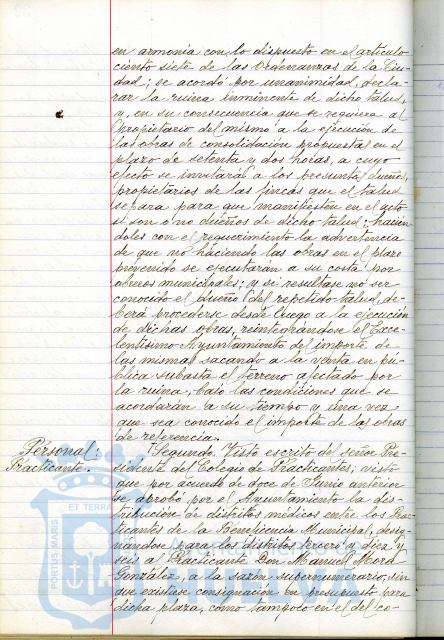 en armonia con lo dispuesto en el artículo
ciento siete de las Ordenanzas de la Ciu-
dad; se acordó por unanimidad, decla-
rar la ruina inminente de dicho talud,
y, en su consecuencia que se requiera al
propietario del mismo a la ejecución de
las obras de consolidación propuestas en el
plazo de setenta y dos horas, a cuyo
efecto se invitarán a los presuntos dueños,
propietarios de las fincas que el talud
separa para que manifiesten en el acto
si son o no dueños de dicho talud; hacién-
doles con el requerimiento la advertencia
de que no haciendo las obras en el plazo
prevenido se ejecutarán a su costa por
obreros municipales; y si resultase no ser
conocido el dueño del repetido talud, de-
berá procederse desde luego a la ejecución
de dichas obras, reintegrándose el Exce-
lentísimo Ayuntamiento del importe de
las mismas sacando a la venta en pú-
blica subasta el terreno afectado por
la ruina, bajo las condiciones que se
acordarán a su tiempo y una vez
que sea conocido el importe de las obras
de referencia.
Personal:
Practicante.
Segundo. Visto escrito del señor Pre-
sidente del Colegio de Practicantes; visto
que por acuerdo de doce de Junio anterior
se aprobó por el Ayuntamiento la dis-
tribución de distritos médicos entre los Prac-
ticantes de la Beneficencia Municipal, desig-
nándose para los distritos tercero y diez y
seis a Practicante Don Manuel
González, a la sazón supernumerario, sin
que existiese consignación en presupuesto para
dicha plaza, como tampoco en el del co-
PORTUS MARIS ET TERRA